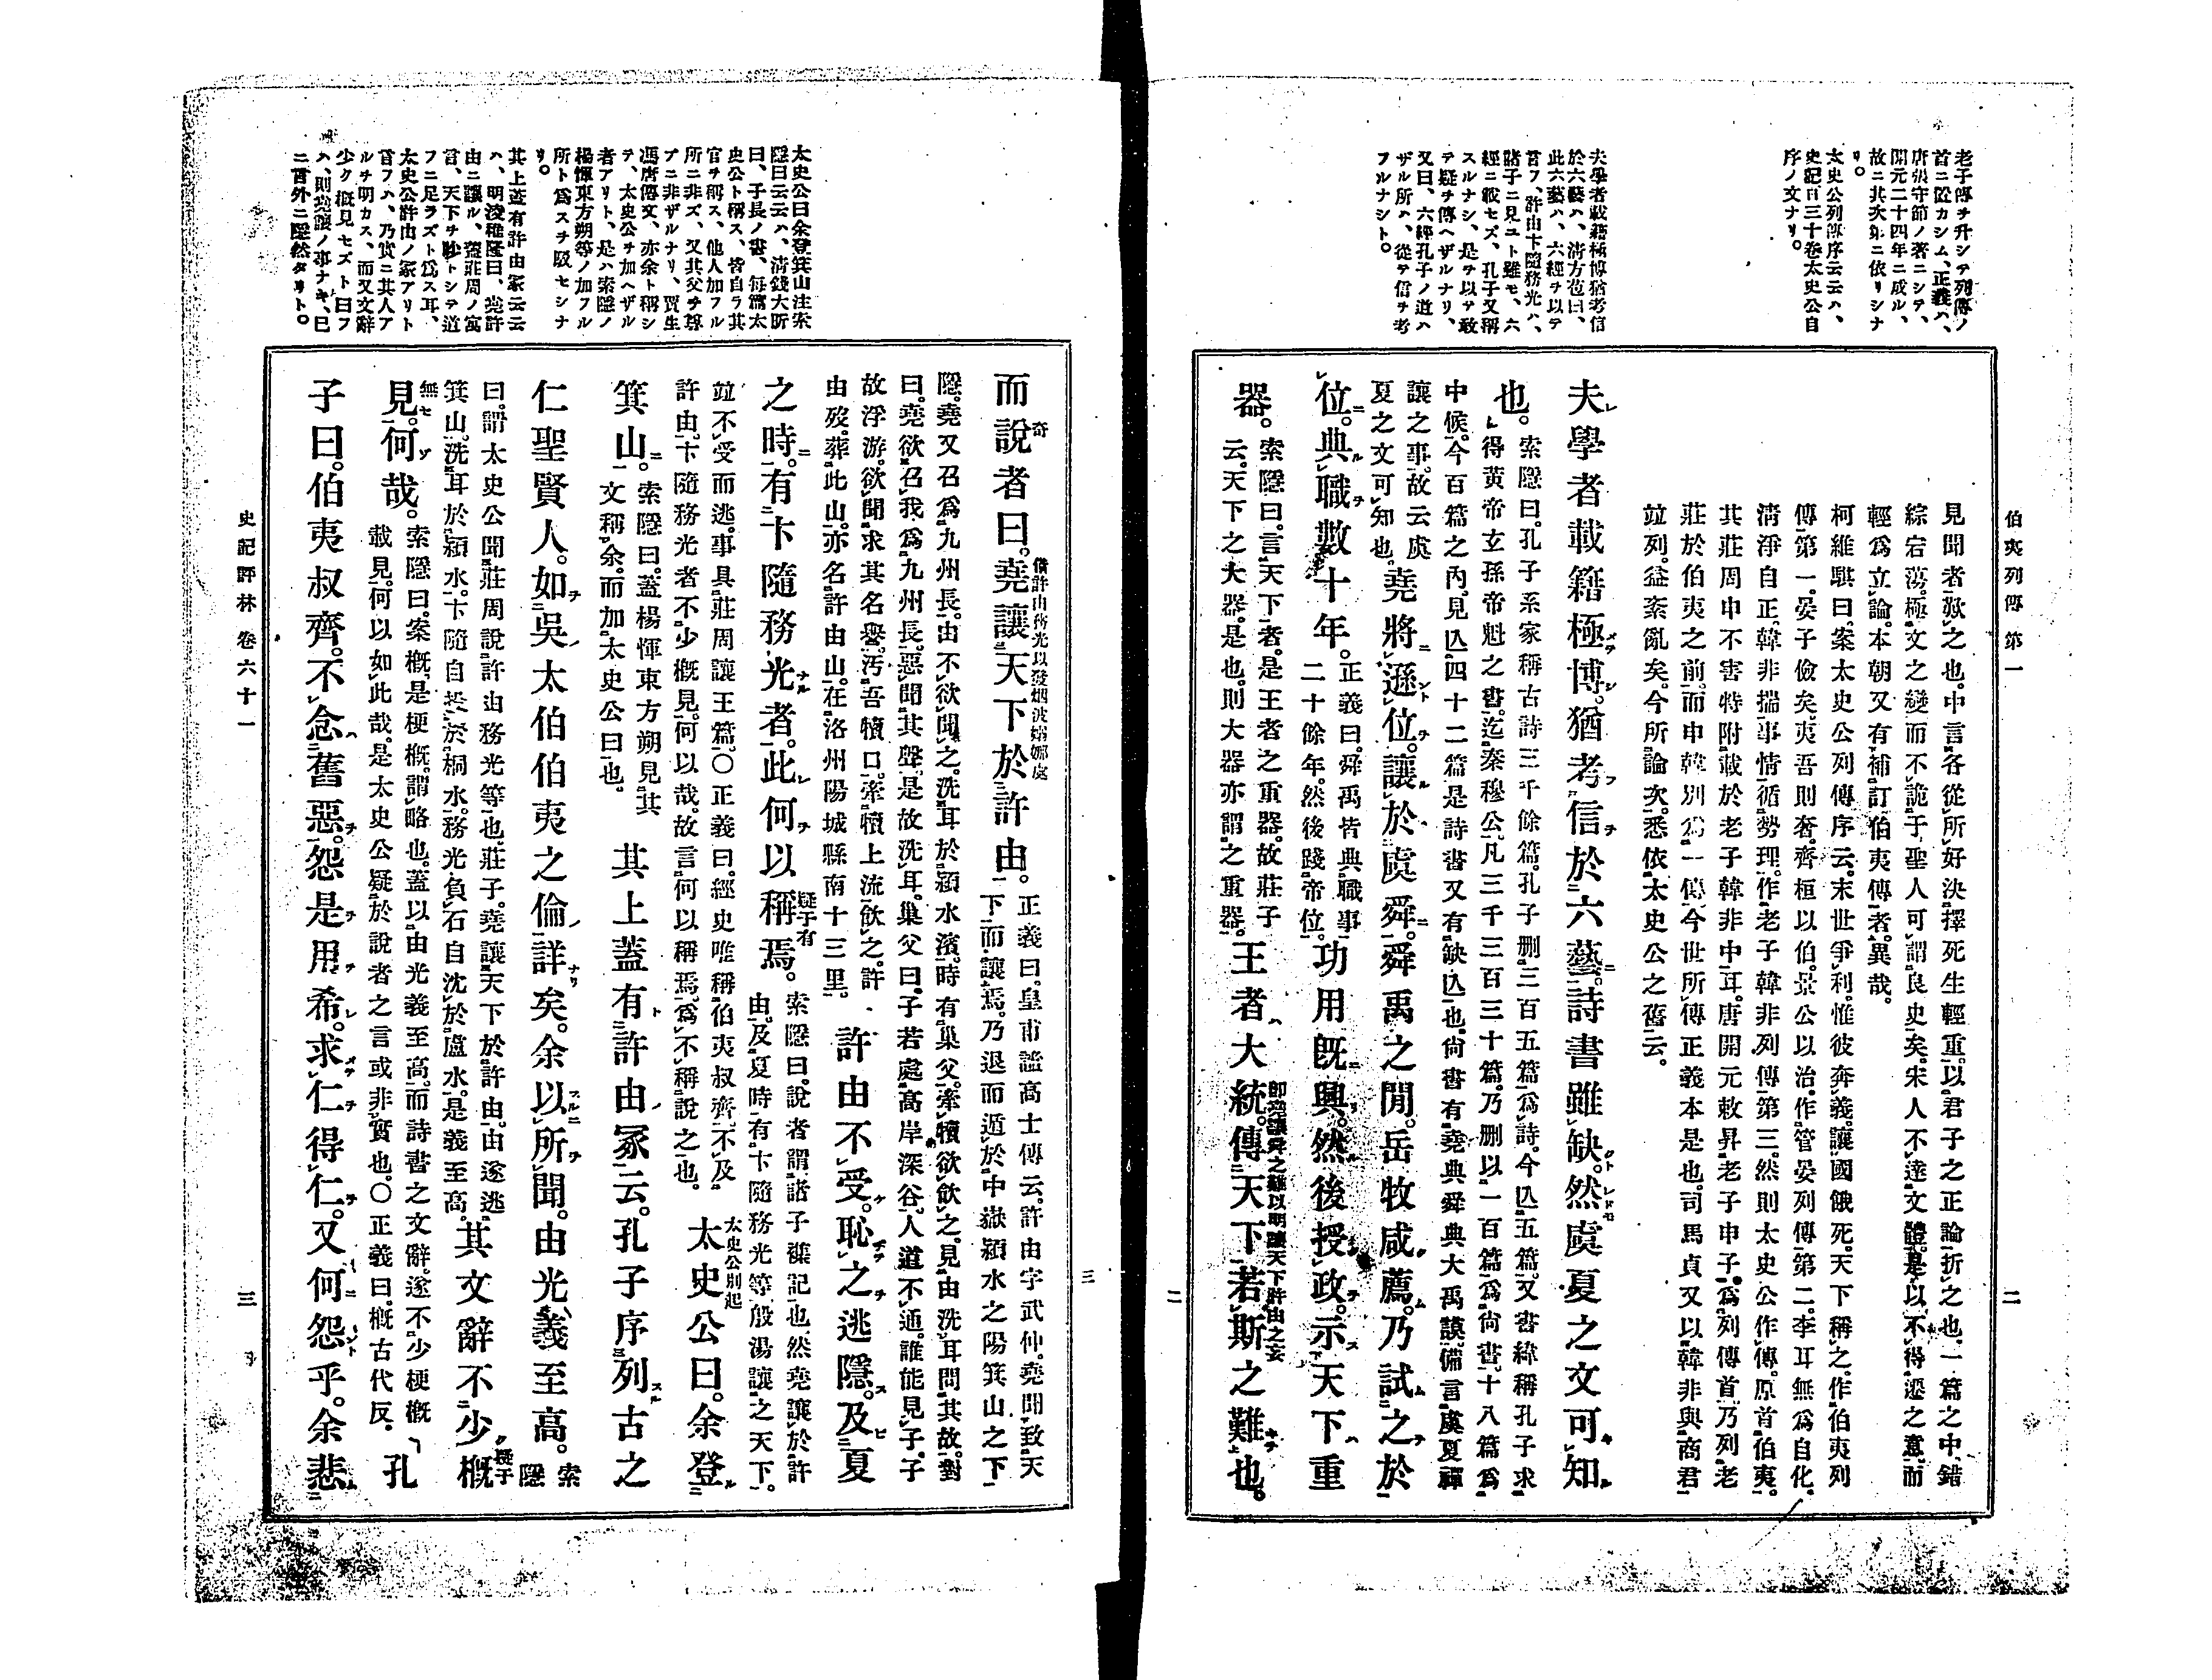 老子傳チ升シテ列傳ノ
首ニ居カシム、正義ハ、
唐張守節ノ著ニシテ、
開元二十四年ニ成ル、
故ニ其次第ニ依リシナ
リ。
太史公列傳序云云ハ、
史記百三十卷太史公自
序ノ文ナリ。
夫學者載籍極博猶考信
於六藝ハ、淸方苞曰、
此六藝ハ、六經ヲ以テ
言フ、許由卞隨務光ハ、
諸子ニ見ユト雖モ、六
經ニ載セズ、孔子又稱
スルナシ、是ヲ以テ敢
テ疑ヲ傳ヘザルナリ、
又曰、六經孔子ノ道ハ
ザル所ハ、從テ信ヲ考
フルナシト。
伯夷列傳 第一
二
見聞者歎之也。中言各從所好決擇死生輕重。以君子之正論折之也。一篇之中、錯
綜宕蕩。極文之變而不詭于聖人可謂良史矣。宋人不達文體。是以不得遷之意。而
輕爲立論。本朝又有補訂伯夷傳者。異哉。
柯維騏曰。案太史公列傳序云。末世爭利。惟彼奔義。讓國餓死。天下稱之。作伯夷列
傳第一。晏子儉矣。夷吾則奢。齊桓以伯。景公以治。作管晏列傳第二。李耳無爲自化。
淸淨自正。韓非揣事情循勢理。作老子韓非列傳第三。然則太史公作傳。原首伯夷。
其莊周申不害特附載於老子韓非中耳。唐開元敕昇老子申子。爲列傳首。乃列老
莊於伯夷之前。而申韓別爲一傳。今世所傳正義本是也。司馬貞又以韓非與商君
竝列。益紊亂矣。今所論次。悉依太史公之舊云。
夫學者載籍極博。猶考信於六藝。詩書雖缺。然虞夏之文可知
也。索隱曰。孔子系家稱古詩三千餘篇。孔子刪三百五篇爲詩。今亾五篇。又書緯稱孔子求
得黃帝玄孫帝魁之書。迄秦穆公。凡三千三百三十篇。乃刪以一百篇爲尙書。十八篇爲
中候。今百篇之內。見亾四十二篇。是詩書又有缺亾也。尙書有堯典舜典大禹謨。備言虞夏禪
讓之事。故云虞
夏之文可知也。堯將遜位。讓於虞舜。舜禹之閒。岳牧咸薦。乃試之於
位。典職數十年。正義曰。舜禹皆典職事
二十餘年。然後踐帝位。功用旣興。然後授政。示天下重
器。索隱曰。言天下者。是王者之重器。故莊子
云。天下之大器。是也。則大器亦謂之重器。王者大統。傳天下若斯之難也。
卽堯讓舜之難以明讓天下許由之妄
二
三
而說者曰。堯讓天下於許由。正義曰。皇甫謐高士傳云。許由字武仲。堯聞致天
下而讓焉。乃退而遁於中嶽潁水之陽箕山之下
隱。堯又召爲九州長。由不欲聞之。洗耳於潁水濱。時有巢父。牽犢欲飮之。見由洗耳問其故。對
曰。堯欲召我爲九州長。惡聞其聲。是故洗耳。巢父曰。子若處高岸深谷。人道不通。誰能見子。子
故浮游。欲聞求其名譽。汚吾犢口。牽犢上流飮之。許
由歿。葬此山。亦名許由山。在洛州陽城縣南十三里。許由不受。恥之逃隱。及夏
之時。有卞隨務光者。此何以稱焉。索隱曰。說者謂。諸子雜記也。然堯讓於許
由。及夏時有卞隨務光等。殷湯讓之天下。
竝不受而逃。事具莊周讓王篇。○正義曰。經史唯稱伯夷叔齊。不及
許由。卞隨務光者不少槪見。何以哉。故言何以稱焉。爲不稱說之也。太史公曰。余登
太史公別起
箕山。索隱曰。蓋楊惲東方朔見其
文稱余。而加太史公曰也。其上蓋有許由冢云。孔子序列古之
仁聖賢人。如吳太伯伯夷之倫詳矣。余以所聞。由光義至高。索隱
曰。謂太史公聞莊周說許由務光等也。莊子。堯讓天下於許由。由遂逃
箕山。洗耳於潁水。卞隨自投於桐水。務光負石自沈於廬水。是義至高。其文辭不少槪
見。何哉。索隱曰。案槪是梗槪。謂略也。蓋以由光義至高。而詩書之文辭。遂不少梗槪
載見。何以如此哉。是太史公疑於說者之言或非實也。○正義曰。槪古代反。孔
子曰。伯夷叔齊。不念舊惡。怨是用希。求仁得仁。又何怨乎。余悲
太史公曰余登箕山注索
隱曰云云ハ、淸錢大昕
曰、子長ノ書、每篇太
史公ト稱ス、皆自ラ其
官ヲ稱ス、他人加フル
所ニ非ズ、又其父ヲ尊
ブニ非ザルナリ、賈生
馮唐傳文、亦余ト稱シ
テ、太史公ヲ加ヘザル
者アリト、是ハ索隱ノ
楊惲東方朔等ノ加フル
所ト爲スヲ駁セシナ
リ。
其上蓋有許由冢云云
ハ、明淩稚隆曰、堯許
由ニ讓ル、蓋莊周ノ寓
言、天下ヲ眇トシテ道
フニ足ラズト爲ス耳、
太史公許由ノ冢アリト
言フハ、乃實ニ其人ア
ルヲ明カス、而又文辭
少ク槪見セズト曰フ
ハ、則堯讓ノ事ナキ、已
ニ言外ニ隱然タリト。
史記評林 卷六十一
三